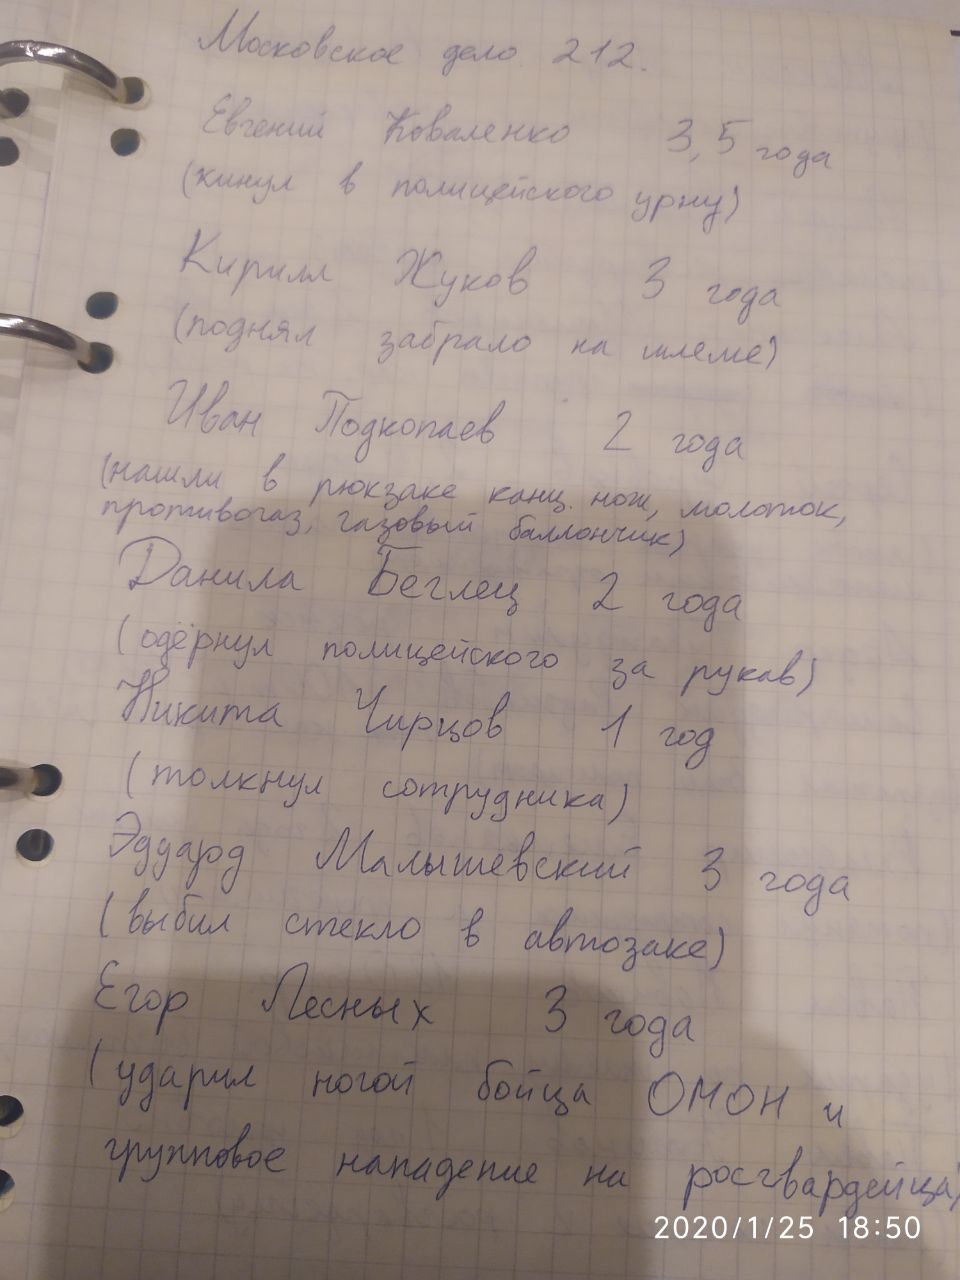 Московское дело 212.
Евгений Коваленко 3,5 года
(кинул в полицейского урну)
Кирилл Жуков 3 года
(поднял забрало на шлеме)
Иван Подкопаев 2 года
(нашли в рюкзаке канц. нож, молоток,
противогаз, газовый баллончик)
Данила Беглец 2 года
(одёрнул полицейского за рукав)
Никита Чирцов 1 год
(толкнул сотрудника)
Эдуард Малышевский 3 года
(выбил стекло в автозаке)
Егор Лесных 3 года
(ударил ногой бойца ОМОН и
групповое нападение на росгвардейца)
2020/1/25 18:50